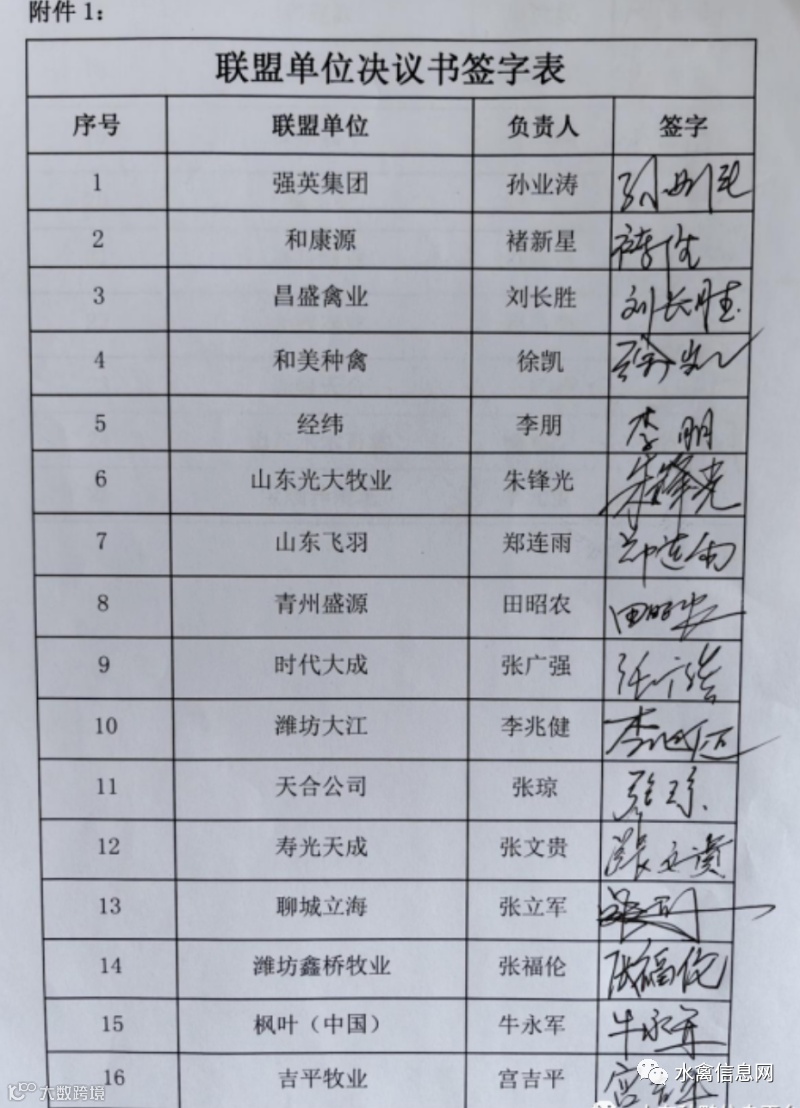 附件 1：
联盟单位决议书签字表
序号 联盟单位 负责人 签字
1 强英集团 孙业涛
2 和康源 褚新星
3 昌盛禽业 刘长胜 刘长胜
4 和美种禽 徐凯
5 经纬 李朋 李朋
6 山东光大牧业 朱锋光 朱锋光
7 山东飞羽 郑连雨 郑连雨
8 青州盛源 田昭农
9 时代大成 张广强
10 潍坊大江 李兆健
11 天合公司 张琼 张琼
12 寿光天成 张文贵 張文貴
13 聊城立海 张立军
14 潍坊鑫桥牧业 张福伦 张福伦
15 枫叶（中国） 牛永军 牛永军
16 吉平牧业 宫吉平
大数跨境
水禽信息网